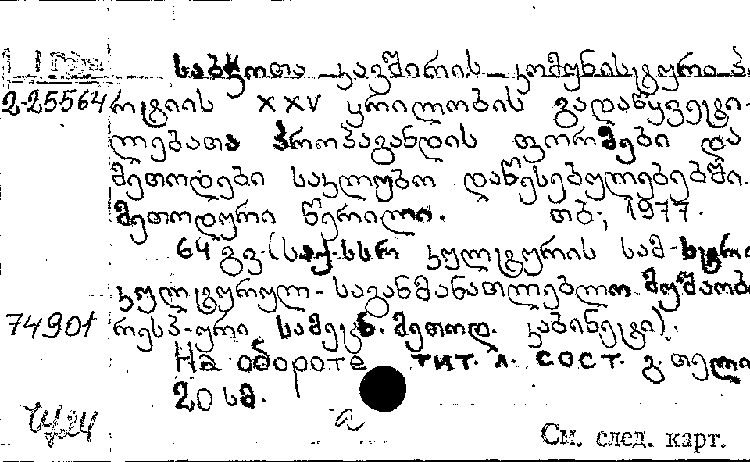 საბჭოთა კავშირის კომუნისტური პა
2-25564 რტიის XXV ყრილობის გადაწყვეტი-
ლებათა პროპაგანდის ფორმები და
მეთოდები საკლუბო დაწესებულებებში.
მეთოდური წერილი. თბ., 1977.
64 გვ. (საქ. სსრ კულტურის სამ-სტრო
კულტურულ-საგანმანათლებლო მუშაობი
74901 რესპ-ური სამეცნ. მეთოდ. კაბინეტი).
На обороте тит. л. сост. გ. თელი
20 სმ.
См. след. карт.